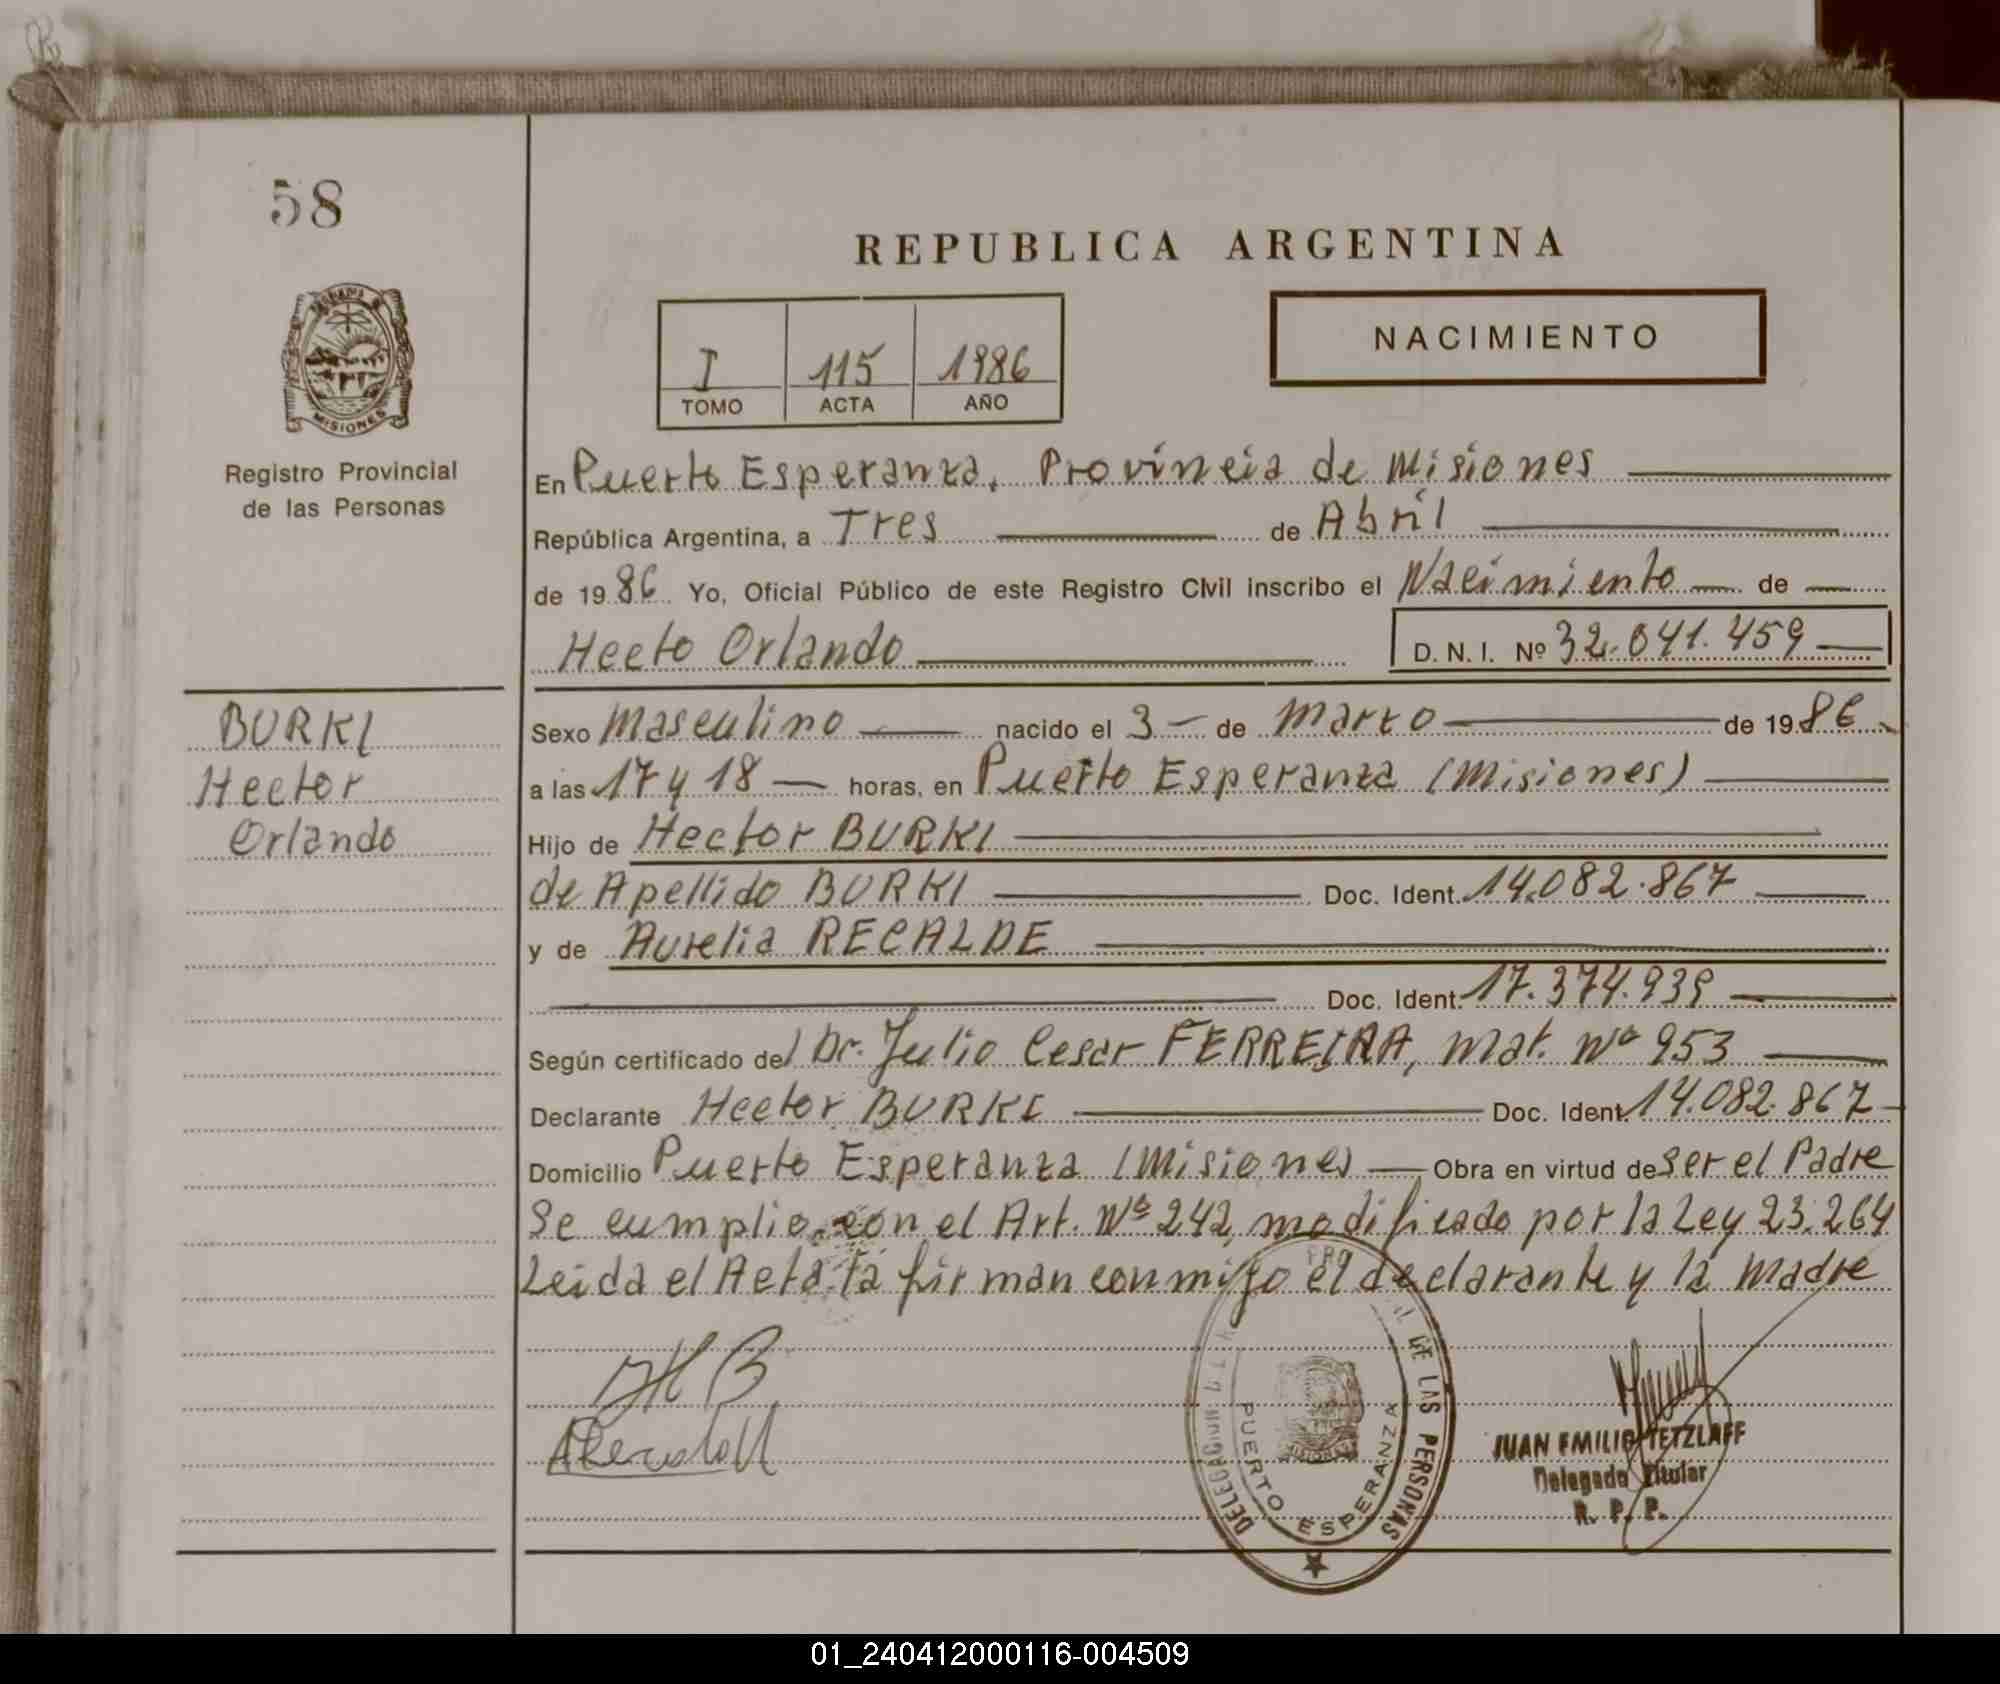 58
REPUBLICA ARGENTINA
MISIONES
Registro Provincial
de las Personas
I 115 1986
TOMO ACTA AÑO
NACIMIENTO
En Puerto Esperanza, Provincia de Misiones
República Argentina, a Tres de Abril
de 1986 Yo, Oficial Público de este Registro Civil inscribo el Nacimiento de
Hecto Orlando D. N. I. Nº 32.041.459
BURKI
Hector
Orlando
Sexo Masculino nacido el 3 de Marzo de 1986
a las 17 y 18 horas, en Puerto Esperanza (Misiones)
Hijo de Hector BURKI
de Apellido BURKI Doc. Ident. 14.082.867
y de Aurelia RECALDE
Doc. Ident. 17.374.939
Según certificado del Dr. Julio Cesar FERREIRA, Mat. Nº 953
Declarante Hector BURKI Doc. Ident. 14.082.867
Domicilio Puerto Esperanza (Misiones) Obra en virtud de ser el Padre
Se cumplio con el Art. Nº 242, modificado por la Ley 23.264
Leida el Acta la firman conmigo el declarante y la Madre
HB
DE LAS PERSONAS
PUERTO ESPERANZA
JUAN EMILIO TETZLAFF
Delegado Titular
R. P. P.
01_240412000116-004509